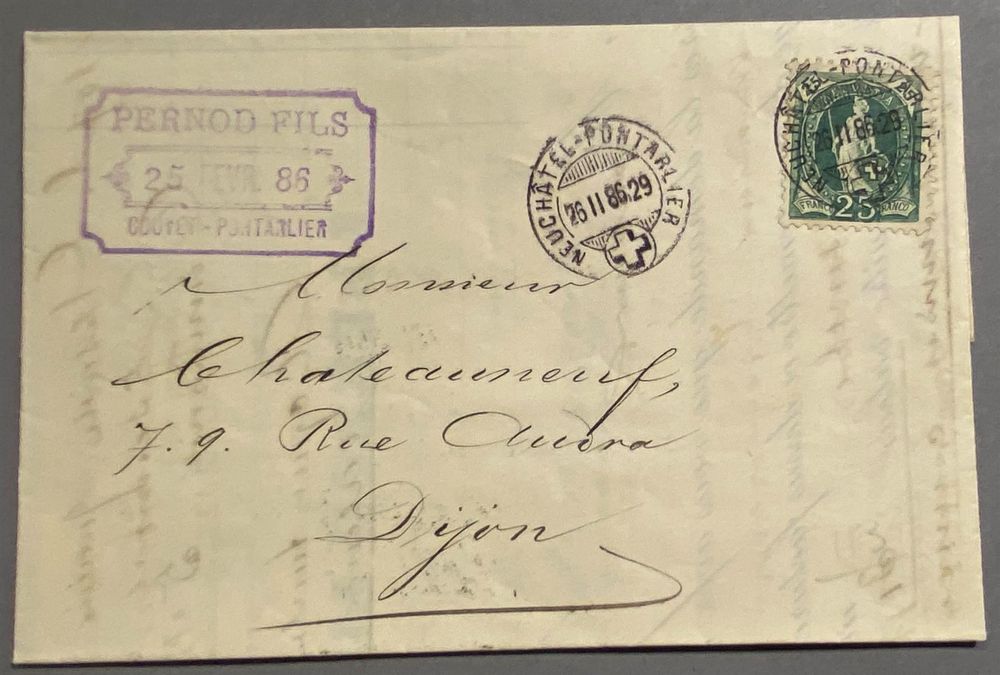 PERNOD FILS
25 FEVR. 86
COUVET - PONTARLIER
NEUCHÂTEL-PONTARLIER
26 II 86.29
NEUCHÂTEL-PONTARLIER
26 II 86.29
FRANCO 25 FRANCO
Monsieur
Chateauneuf,
7.9. Rue Audra
Dijon